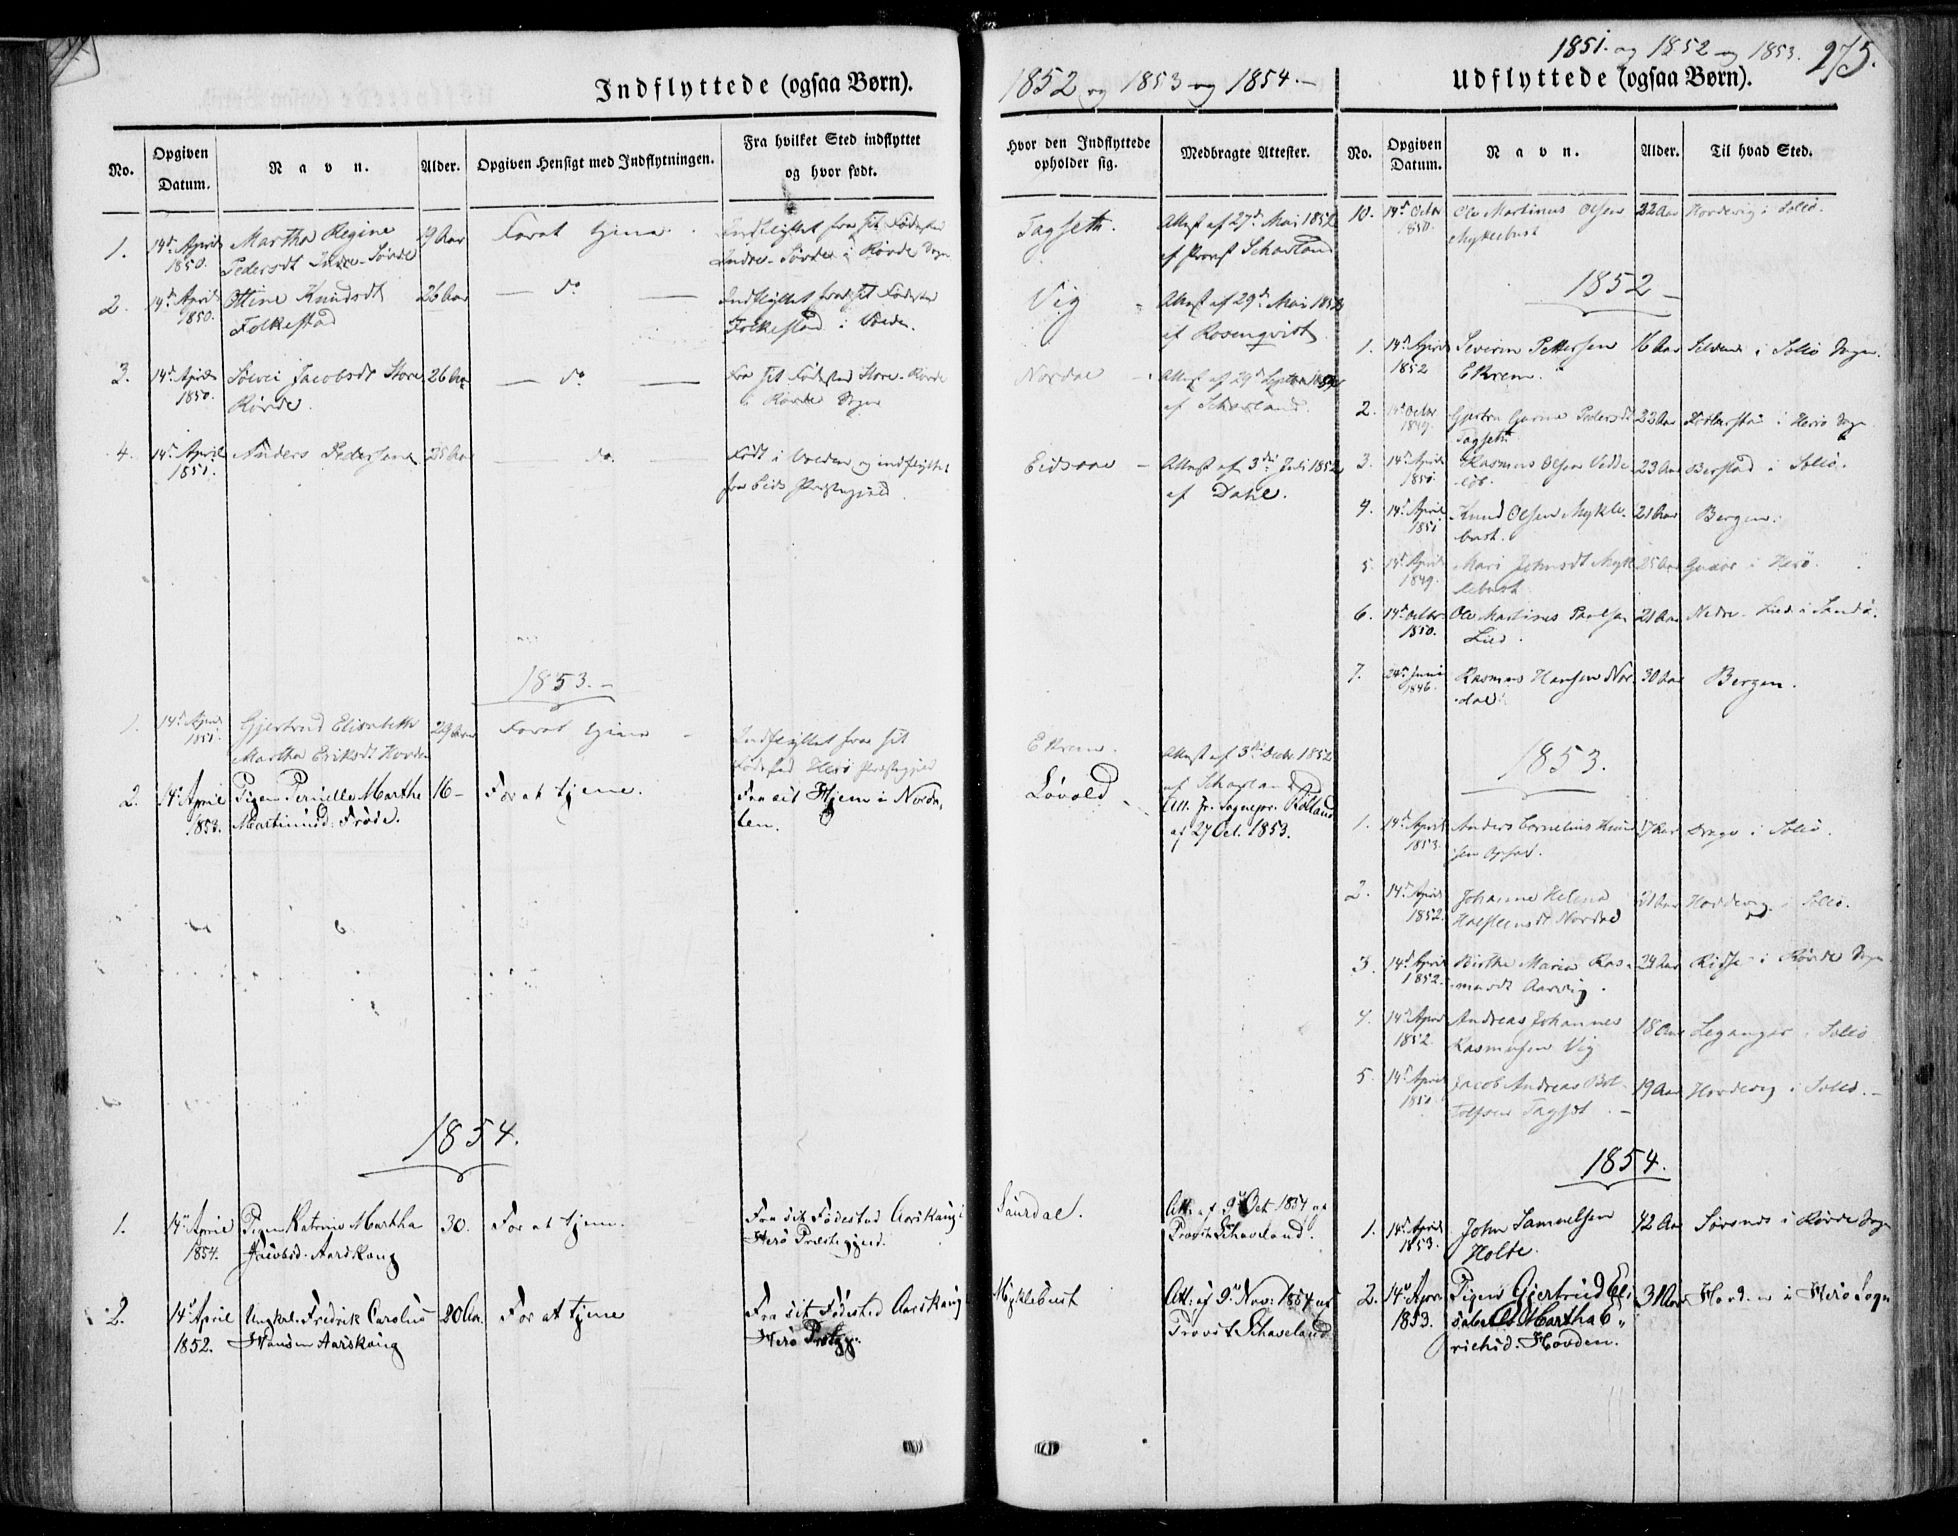 1851. og 1852 og 1853. 275.
Indflyttede (ogsaa Børn).
1852 og 1853 og 1854.
Udflyttede (ogsaa Børn).
No.
Opgiven Datum.
Navn.
Alder.
Opgiven Hensigt med Indflytningen.
Fra hvilket Sted indflyttet og hvor født.
Hvor den Indflyttede opholder sig.
Medbragte Attester.
No.
Opgiven Datum.
Navn.
Alder.
Til hvad Sted.
1. 14de April 1850. Martha Regine Pedersdt Indre-Sørde 19 Aar For at tjene. Indflyttet fra sit Fødested Indre-Sørde i Rövde Sogn Tagseth. Attest af 27de Mai 1852 af Provst Schaeland
2. 14de April 1850. Ottine Knudsdt Folkestad 26 Aar do Indflyttet fra sit Fødested Folkestad i Volden. Vig Attest af 29de Mai 1852 af Rosenqvist
3. 14de April 1850. Jacobsdt Store Rövde. 26 Aar do Fra sit Fødested Store-Rövde i Rövde Sogn Nordal Attest af 29de af Schaeland.
4. 14de April 1851. Anders Pedersen 25 Aar do. Født i Volden og indflyttet fra Eids Præstegjeld. Eidsaae Attest af 3die Juli 1852 af Dahl.
1853.
1. 14de April 1851. Gjertrud Elisabeth Martha Eriksdt Hovden 29 Aar For at tjene Indflyttet fra sit Fødested Herö Præstegjeld Ekrem. Attest af 3die Decbr 1852 af Schaeland
2. 14de April 1853. Pigen Pernelle Marthe Martinusd. Frøde. 16 For at tjene. Fra sit Hjem i Nordalen. Løvold Att. fr. Sognepr. Rølland af 27 Oct. 1853.
1854.
1. 14de April 1854. Pigen Katrine Martha Jacobsd. Aarskoug 30. For at tjene. Fra sit Fødested Aarskoug i Herö Præstegjeld. Saurdal. Att. af 9de Oct. 1854 af Provst Schaeland.
2. 14de April 1852. Ungkrl. Fredrik Carolus Hansen Aarskoug 20 Aar. For at tjene Fra sit Fødested Aarskoug Herö Præstegj. Myklebust Att. af 9de Nov. 1854 af Provst Schaeland
10. 14de Octbr 1850. Ole Martinus Olsen Myklebust 22 Aar Hordevig i Selö.
1852
1. 14de April 1852 Severin Pettersen Ekrem. 16 Aar i Selö Sogn.
2. 14de Octbr 1849. Pedersdt Tagseth. 22 Aar i Herö Sogn
3. 14de April 1851. Rasmus Olsen 23 Aar Berstad i Selö.
4. 14de April 1851 Knud Olsen Myklebust. 21 Aar Bergen.
5. 14de April 1849. Mari Johnsdt Myklebust 25 Aar i Herö.
6. 14de Octbr 1850. Ole Martinus Paulsen Lied. 21 Aar Nedre-Lied i Sandö.
7. 24de Juni 1846. Rasmus Hansen Nordal. 30 Aar Bergen.
1853.
1. 14de April 1853. Anders Cornelius Knudsen 17 Aar Drage i Selö.
2. 14de April 1852. Johanne Helena Halsteensdt Nordal 21 Aar Hordevig i Selö.
3. 14de April 1852. Birthe Maria Rasmusdt Aarvig. 24 Aar i Rövde Sogn
4. 14de April 1852 Andreas Johannes Rasmusen Vig 18 Aar Leganger i Selö
5. 14de April 1850. Jacob Andreas Botolfsen Tagset. 19 Aar Hordevig i Selö.
1854.
1. 14de April 1853. John Samuelsen Holte. 42 Aar Sørsnes i Rövde Sogn
2. 14de April 1853. Pigen Gjertrud Elisabeth Martha Erichsd. Hovden. 31 Aar Hovden i Herö Sogn